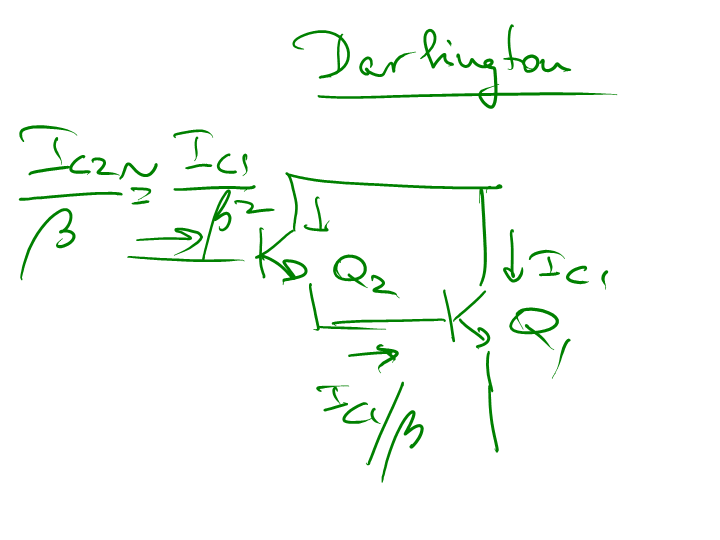 Darlington
I_{C2}/β ≅ I_{C1}/β²
Q₂
I_{C1}
Q₁
I_{C1}/β